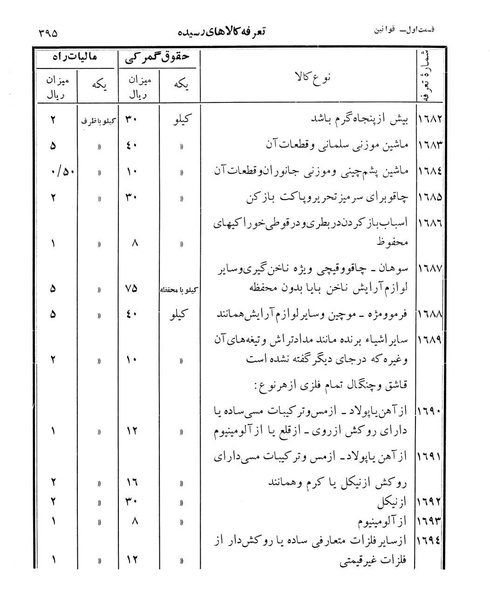 قسمت اول ــ قوانین تعرفه کالاهای رسیده ۳۹۵
شمارهٔ تعرفه نوع کالا حقوق گمرکی مالیات راه
یکه میزان ریال یکه میزان ریال
۱۶۸۲ بیش از پنجاه گرم باشد کیلو ۳۰ کیلو با ظرف ۲
۱۶۸۳ ماشین موزنی سلمانی و قطعات آن » ۴۰ » ۵
۱۶۸۴ ماشین پشم‌چینی و موزنی جانوران و قطعات آن » ۱۰ » ۰/۵۰
۱۶۸۵ چاقو برای سرمیز تحریر و پاکت بازکن » ۳۰ » ۲
۱۶۸۶ اسباب باز کردن در بطری و در قوطی خوراکیهای
محفوظ » ۸ » ۱
۱۶۸۷ سوهان ـ چاقو و قیچی ویژه ناخن گیری و سایر
لوازم آرایش ناخن با یا بدون محفظه » ۷۵ کیلو با محفظه ۵
۱۶۸۸ فرموومژه ـ موچین و سایر لوازم آرایش همانند کیلو ۴۰ » ۵
۱۶۸۹ سایر اشیاء برنده مانند مداد تراش و تیغه‌های آن
و غیره که در جای دیگر گفته نشده است » ۱۰ » ۲
قاشق و چنگال تمام فلزی از هر نوع:
۱۶۹۰ از آهن یا پولاد ـ از مس و ترکیبات مسی ساده یا
دارای روکش از روی ـ از قلع یا از آلومینیوم » ۱۲ » ۱
۱۶۹۱ از آهن یا پولاد ـ از مس و ترکیبات مسی دارای
روکش از نیکل یا کرم و همانند » ۱۶ » ۲
۱۶۹۲ از نیکل » ۳۰ » ۲
۱۶۹۳ از آلومینیوم » ۸ » ۱
۱۶۹۴ از سایر فلزات متعارفی ساده یا روکش دار از
فلزات غیر قیمتی » ۱۲ » ۱